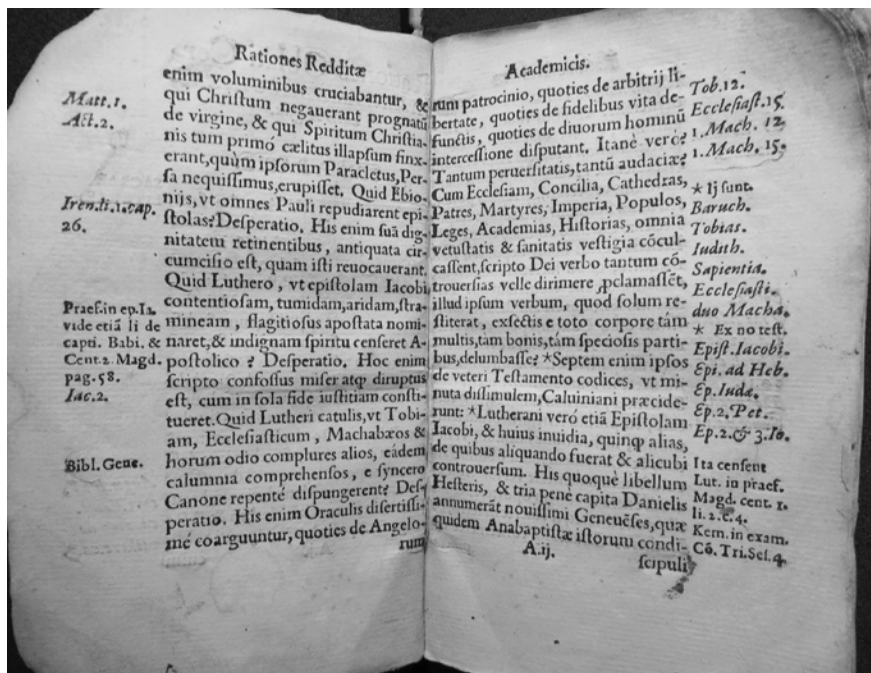 Rationes Redditæ
Matt.1.
Act.2.
Iren.li.1.cap.
26.
Præf.in ep.Ia.
vide etiã li de
capti. Babi. &
Cent.2. Magd.
pag.58.
Iac.2.
Bibl. Gene.
enim voluminibus cruciabantur, &
qui Chriſtum negauerant prognatũ
de virgine, & qui Spiritum Chriſtia-
nis tum primó cælitus illapſum finx-
erant, quùm ipſorum Paracletus, Per-
ſa nequiſſimus, erupiſſet. Quid Ebio-
nijs, vt omnes Pauli repudiarent epi-
ſtolas? Deſperatio. His enim ſuã dig-
nitatem retinentibus, antiquata cir-
cumciſio eſt, quam iſti reuocauerant.
Quid Luthero, vt epiſtolam Iacobi,
contentioſam, tumidam, aridam, ſtra-
mineam, flagitioſus apoſtata nomi-
naret, & indignam ſpiritu cenſeret A-
poſtolico ? Deſperatio. Hoc enim
ſcripto confoſſus miſer atq; diruptus
eſt, cum in ſola fide iuſtitiam conſti-
tueret. Quid Lutheri catulis, vt Tobi-
am, Eccleſiaſticum, Machabæos &
horum odio complures alios, eádem
calumnia comprehenſos, e ſyncero
Canone repenté diſpungerent? Deſ-
peratio. His enim Oraculis diſertiſſi-
mé coarguuntur, quoties de Angelo-
rum
Academicis.
rum patrocinio, quoties de arbitrij li-
bertate, quoties de fidelibus vita de-
functis, quoties de diuorum hominũ
interceſſione diſputant. Itanè veró?
Tantum peruerſitatis, tantũ audaciæ?
Cum Eccleſiam, Concilia, Cathedras,
Patres, Martyres, Imperia, Populos,
Leges, Academias, Hiſtorias, omnia
vetuſtatis & ſanitatis veſtigia cõcul-
caſſent, ſcripto Dei verbo tantum cõ-
trouerſias velle dirimere ꝓclamaſſẽt,
illud ipſum verbum, quod ſolum re-
ſtiterat, exſectis e toto corpore tám
multis, tám bonis, tám ſpecioſis parti-
bus, delumbaſſe? *Septem enim ipſos
de veteri Teſtamento codices, vt mi-
nuta diſſimulem, Caluiniani præcide-
runt: *Lutherani veró etiã Epiſtolam
Iacobi, & huius inuidia, quinq; alias,
de quibus aliquando fuerat & alicubi
controuerſum. His quoquè libellum
Heſteris, & tria penè capita Danielis
annumerãt nouiſſimi Geneuẽſes, quæ
quidem Anabaptiſtæ iſtorum condi-
A.ij.
ſcipuli
Tob.12.
Eccleſiaſt.15.
1.Mach. 12
1.Mach. 15.
* Ij ſunt.
Baruch.
Tobias.
Iudith.
Sapientia.
Eccleſiaſti.
duo Macha.
* Ex no teſt.
Epiſt.Iacobi.
Epi. ad Heb.
Ep.Iudæ.
Ep.2. Pet.
Ep.2.& 3.Io.
Ita cenſent
Lut. in præf.
Magd. cent. 1.
li. 2. c. 4.
Kem. in exam.
Cõ. Tri.Seſ.4.